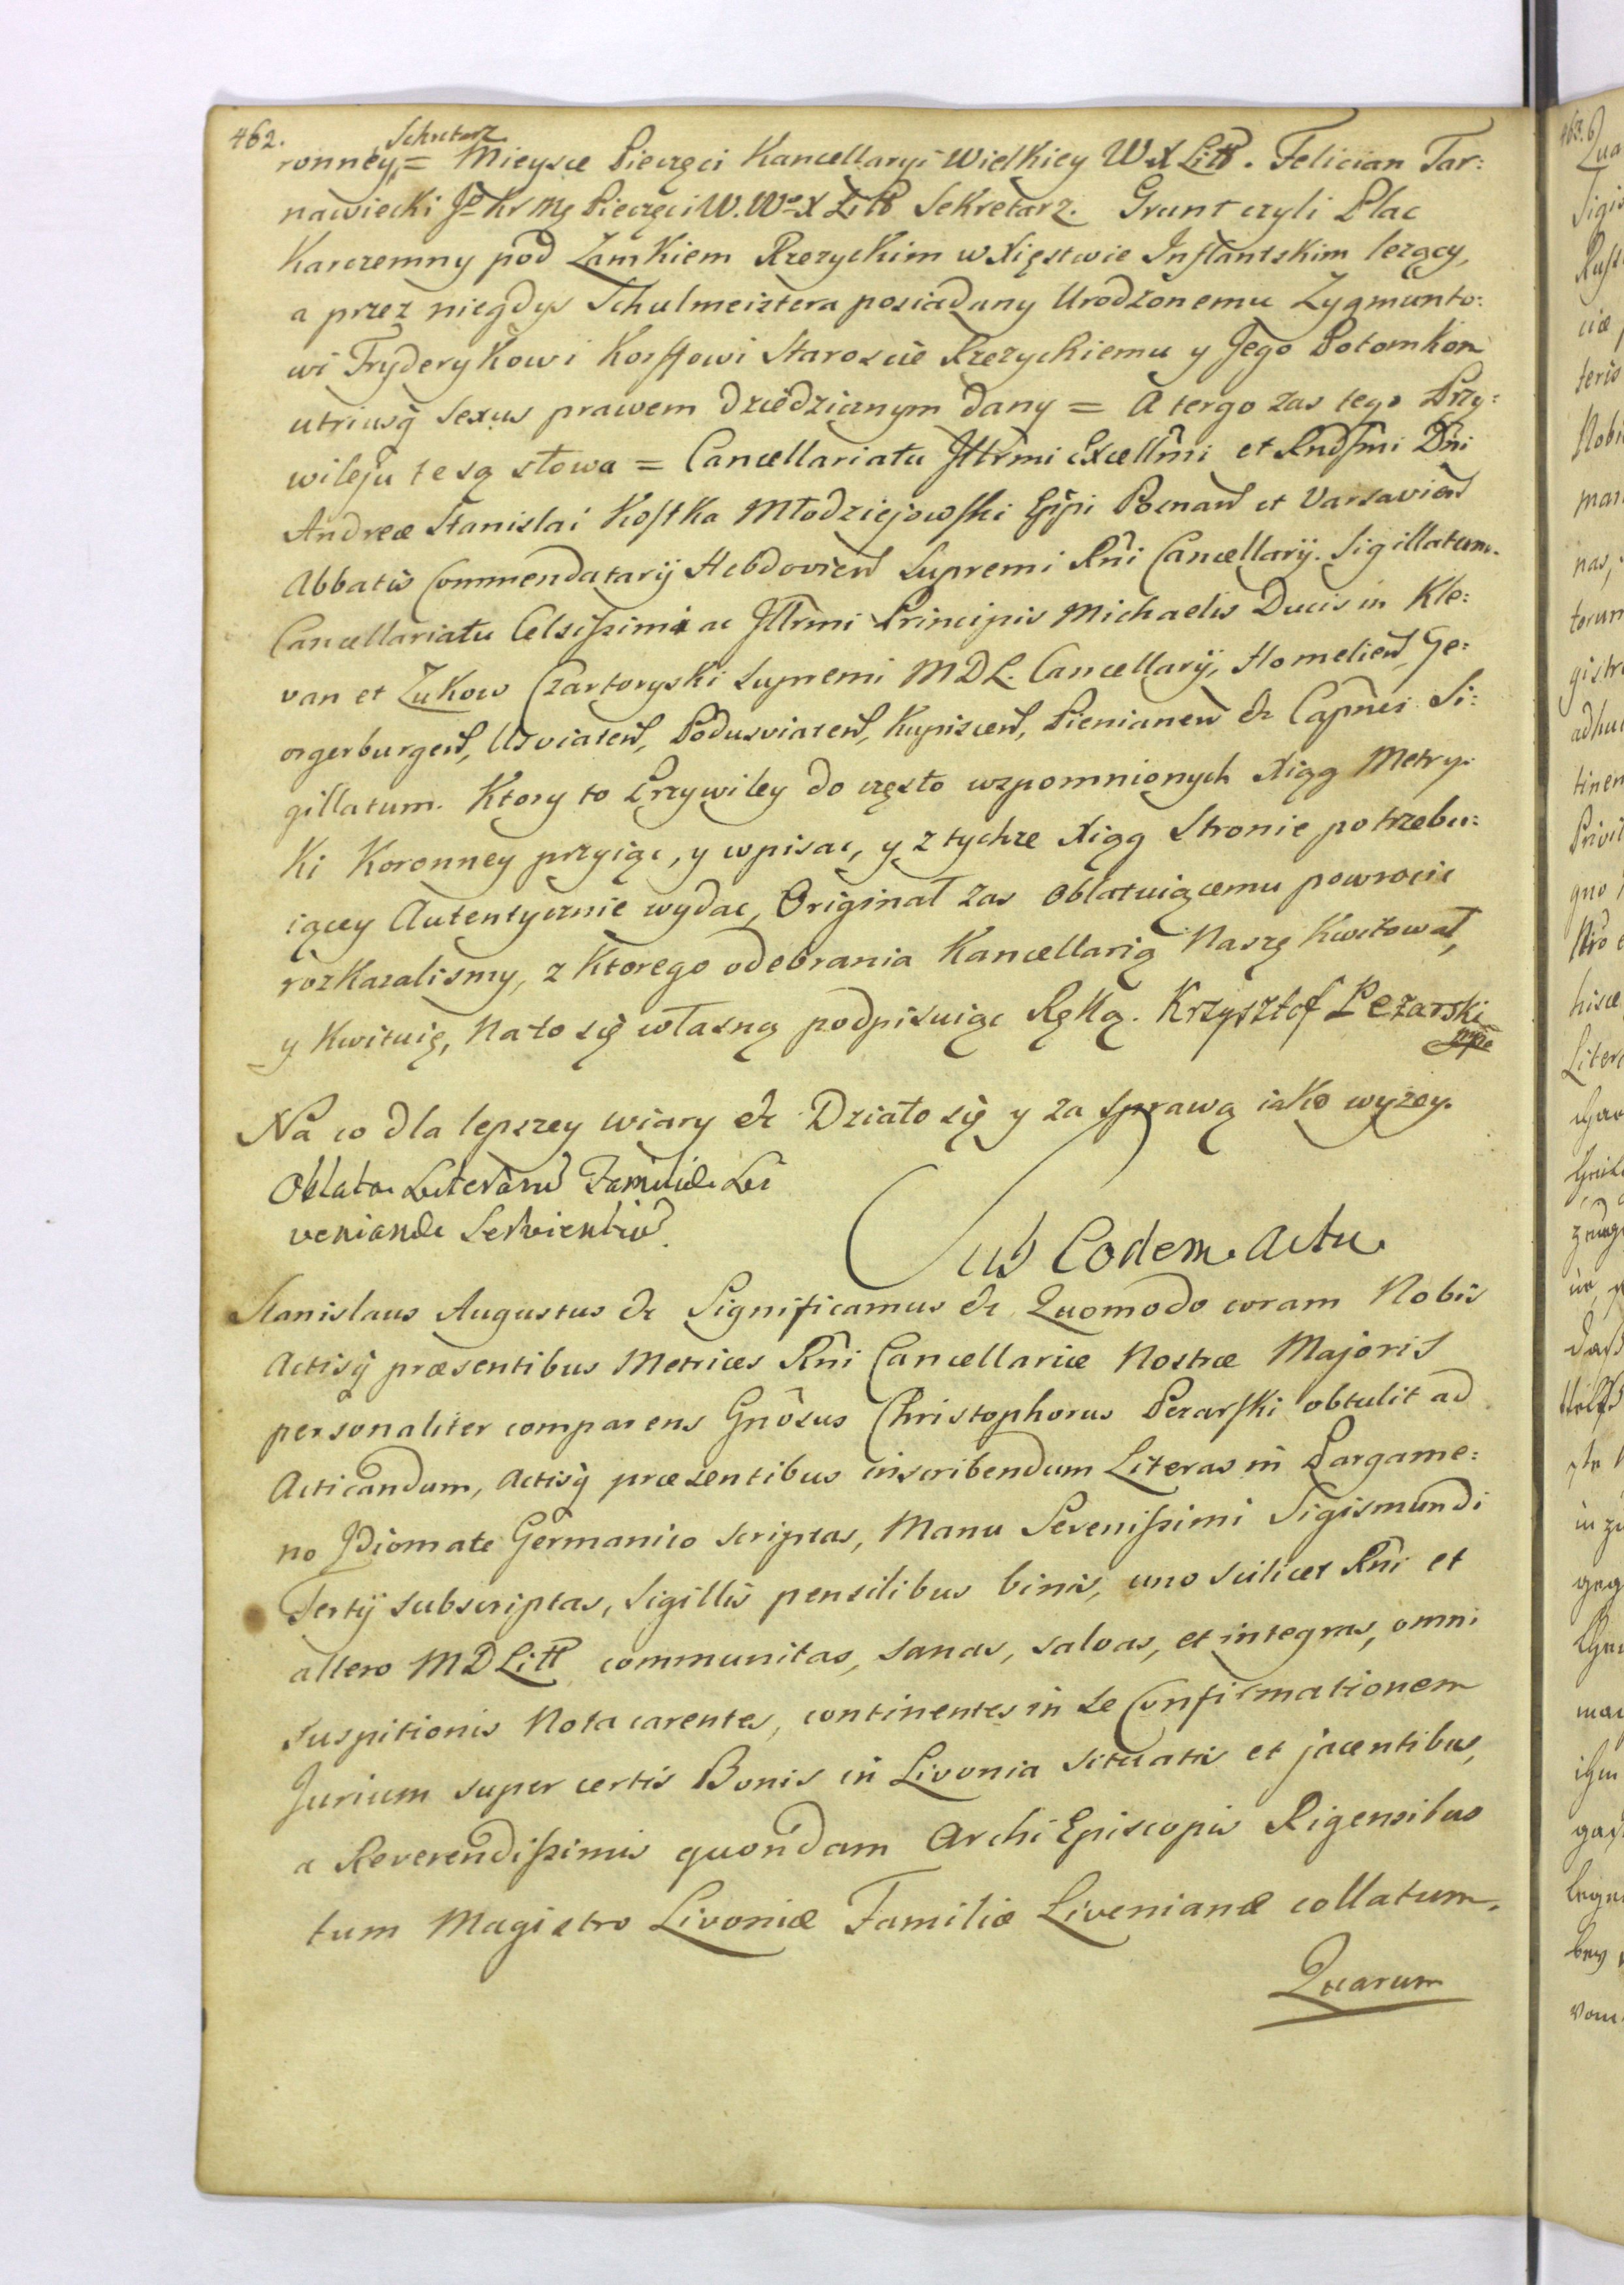 462.
Sekretarz
ronney, = Mieysce Pieczęci Kancellaryi Wielkiey W X Litt. Felician Tar:
nawiecki Jº Kr Mę Pieczęci W. Wº X Litt Sekretarz. Grunt czyli Plac
Karczemny pod Zamkiem Rzezyckim w Xięstwie Inflantskim lezący,
a przez niegdys Schulmeistera posiadany Urodzonemu Zygmunto:
wi Fryderykowi Korffowi Staroscie Rzezyckiemu y Jego Potomkom
utriusq̃ Sexus prawem dziedzicznym dany = A tergo zas tego Przy:
wileju te są słowa = Cancellariatu Jllr̃mi Excellm̃i et Rndſm̃i Dñi
Andreæ Stanislai Koſtka Młodziejowſki Epp̃i Poznañ et Varsavieñ
Abbatis Commendatarij Hebdovieñ Supremi Rñi Cancellarij. Sigillatum.
Cancellariatu Celsiſsimi ac Jllr̃mi Principis Michaelis Ducis in Kle:
van et Zukow Czartoryski Supremi MDL. Cancellarij, Homelieñ, Ge:
orgerburgeñ, Usviateñ, Podusviateñ, Kupisceñ, Pienianeñ &c Capñei Si:
gillatum. Ktory to Przywiley do często wzpomnionych Xiąg Metry:
ki Koronney przyiąc, y wpisac, y z tychze Xiąg Stronie potrzebu:
iącey Autentycznie wydac, Originał zas Oblatuiącemu powrocic
rozkazalismy, z ktorego odebrania Kancellarią Naszę kwitował,
y kwituię, Na to się własną podpisuiąc Ręką. Krzysztof Pezarski
mpe
Na co dla lepszey wiary &c Działo się y za sprawą iako wyzey.
Oblata Literarũ Familiæ Li
venianæ Servientiũ.
Sub Eodem Actu
Stanislaus Augustus &c Significamus &c Quomodo coram Nobis
Actisq̃ præsentibus Metrices Rñi Cancellariæ Nostræ Majoris
personaliter comparens Gnõsus Christophorus Pezarſki obtulit ad
Acticandum, Actisq̃ præsentibus inscribendum Literas in Pargame:
no Jdiomate Germanico scriptas, Manu Sereniſsimi Sigismundi
Tertij subscriptas, Sigillis pensilibus binis, uno scilicet Rñi et
altero MDLitt communitas, sanas, salvas, et integras, omni
suspitionis Nota carentes, continentes in se Confirmationem
Jurium super certis Bonis in Livonia situatis et jacentibus,
a Reverendiſsimis quondam ArchiEpiscopis Rigensibus
tum Magistro Livoniæ Familiæ Livenianæ collatum.
Quarum